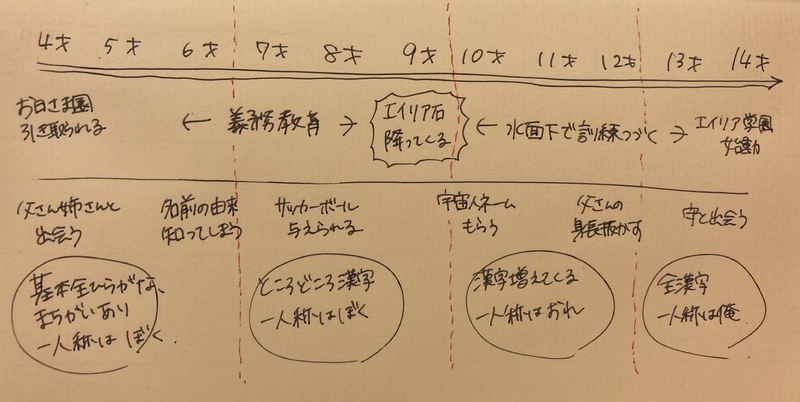 4才 5才 6才 7才 8才 9才 10才 11才 12才 13才 14才
お日さま園
引き取られる
← 義務教育 →
エイリア石
降ってくる
← 水面下で訓練つづく →
エイリア学園
始動
父さん姉さんと
出会う
名前の由来
知ってしまう
サッカーボール
与えられる
宇宙人ネーム
もらう
父さんの
身長抜かす
守と出会う
基本全ひらがな、
まちがいあり
一人称は ぼく.
ところどころ漢字
一人称はぼく
漢字増えてくる
一人称はおれ
全漢字
一人称は俺